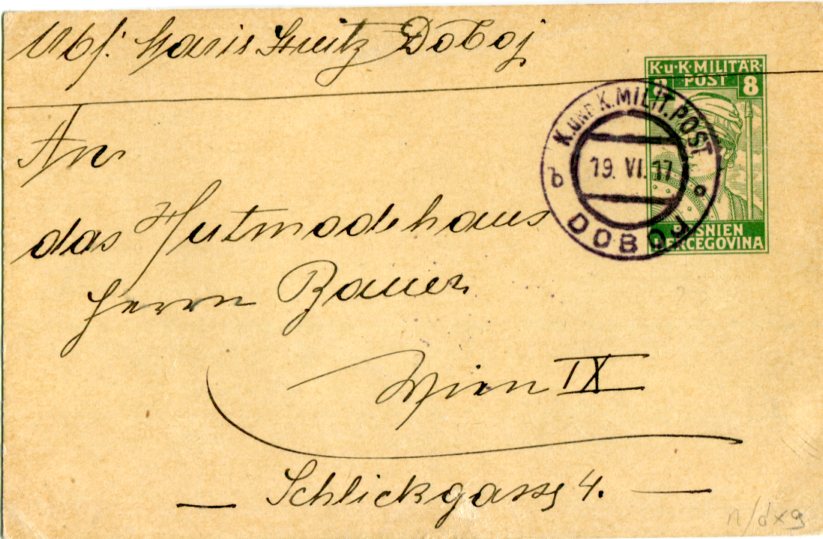 Abs: Maris Streitz Doboj
K.u.K. MILITÄR-
POST
8 8
K. UND K. MILIT. POST
b 19. VI. 17 o
DOBOJ
BOSNIEN
HERCEGOVINA
An
das Hutmodehaus
Herrn Bauer
Wien IX
— Schlickgasse 4. —